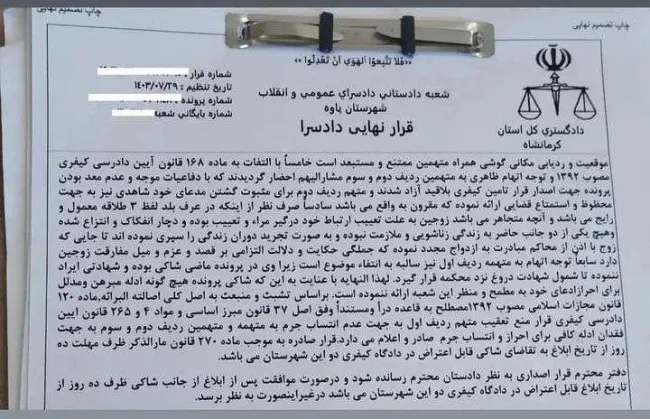 چاپ تصمیم نهایی
چاپ تصمیم نهایی
«فَلا تَتَّبِعُوا الْهَوَى أَنْ تَعْدِلُوا»
شماره قرار :
تاریخ تنظیم : ۱۴۰۳/۰۷/۲۹
شماره پرونده :
شماره بایگانی شعبه
شعبه دادستانی دادسرای عمومی و انقلاب
شهرستان پاوه
قرار نهایی دادسرا
دادگستری کل استان
کرمانشاه
موقعیت و ردیابی مکانی گوشی همراه متهمین ممتنع و مستبعد است خامساً با التفات به ماده ۱۶۸ قانون آیین دادرسی کیفری
مصوب ۱۳۹۲ و توجه اتهام ظاهری به متهمین ردیف دوم و سوم مشارالیهم احضار گردیدند که با دفاعیات موجه و عدم معد بودن
پرونده جهت اصدار قرار تامین کیفری بلاقید آزاد شدند و متهم ردیف دوم برای مثبوت گشتن مدعای خود شاهدی نیز به جهت
محظوظ و استمتاع قضایی ارائه نموده که مقرون به واقع می باشد سادساً صرف نظر از اینکه در عرف بلد لفظ ۳ طلاقه معمول و
رایج می باشد و آنچه متجاهر می باشد زوجین به علت تعییب ارتباط خود درگیر مراء و تعییب بوده و دچار انفکاک و انتزاع شده
وهیچ یکی از دو جانب حاضر به زندگی زناشویی و ملازمت نبوده و به صورت تجرید دوران زندگی را سپری نموده اند تا جایی که
زوج با اذن از محاکم مبادرت به ازدواج مجدد نموده که جملگی حکایت و دلالت التزامی بر قصد و عزم و میل مفارقت زوجین
دارد سابعاً توجه اتهام به متهمه ردیف اول نیز سالبه به انتفاء موضوع است زیرا وی در پرونده ماضی شاکی بوده و شهادتی ایراد
ننموده تا شمول شهادت دروغ نزد محکمه قرار گیرد. لهذا النهایه با عنایت به این که شاکی پرونده هیچ گونه ادله مبرهن ومدلل
برای احرازادعای خود به مطمح و منظر این شعبه ارائه ننموده است. براساس تشبث و منبعث به اصل کلی اصالته البرائه,ماده ۱۲۰
قانون مجازات اسلامی مصوب ۱۳۹۲مصطلح به قاعده درأ ومستنداً وفق اصل ۳۷ قانون مبرز اساسی و مواد ۴ و ۲۶۵ قانون آیین
دادرسی کیفری قرار منع تعقیب متهم ردیف اول به جهت عدم انتساب جرم به متهمه و متهمین ردیف دوم و سوم به جهت
فقدان ادله کافی برای احراز و انتساب جرم صادر و اعلام می دارد.قرار صادره به موجب ماده ۲۷۰ قانون مارالذکر ظرف مهلت ده
روز از تاریخ ابلاغ به تقاضای شاکی قابل اعتراض در دادگاه کیفری دو این شهرستان می باشد.
دفتر محترم قرار اصداری به نظر دادستان محترم رسانده شود و درصورت موافقت پس از ابلاغ از جانب شاکی ظرف ده روز از
تاریخ ابلاغ قابل اعتراض در دادگاه کیفری دو این شهرستان می باشد درغیراینصورت به نظر برسد.